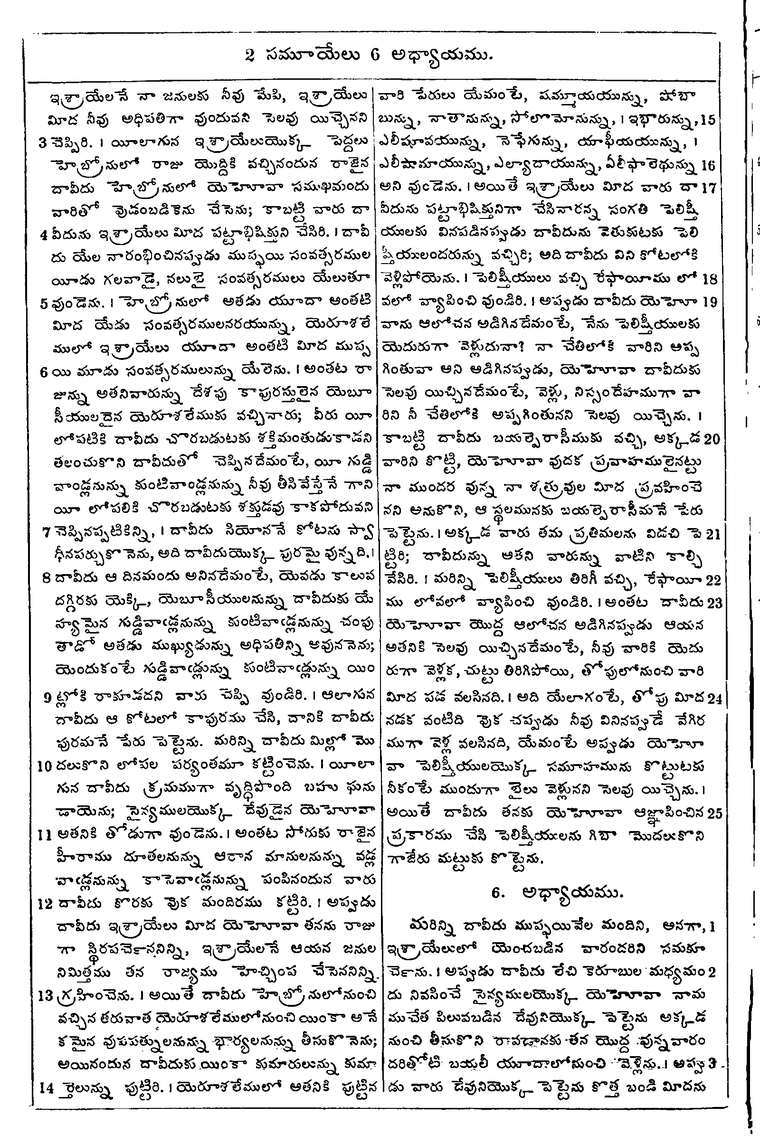 2 సమూయేలు 6 అధ్యాయము.
ఇశ్రాయేలనే నా జనులకు నీవు మేపి, ఇశ్రాయేలు
మీద నీవు అధిపతిగా వుందువని సెలవు యిచ్చెనని
3 చెప్పిరి. । యీలాగున ఇశ్రాయేలుయొక్క పెద్దలు
హెబ్రోనులో రాజు యొద్దికి వచ్చినందున రాజైన
దావీదు హెబ్రోనులో యెహోవా సముఖమందు
వారితో వుడంబడికెను చేసెను; కాబట్టి వారు దా
4 వీదును ఇశ్రాయేలు మీద పట్టాభిషిక్తుని చేసిరి. । దావీ
దు యేల నారంభించినప్పుడు ముప్పయి సంవత్సరముల
యీడు గలవాడై, నలుభై సంవత్సరములు యేలుతూ
5 వుండెను. । హెబ్రోనులో అతడు యూదా అంతటి
మీద యేడు సంవత్సరములనరయున్ను, యెరూశలే
ములో ఇశ్రాయేలు యూదా అంతటి మీద ముప్ప
6 యి మూడు సంవత్సరములున్ను యేలెను. । అంతట రా
జున్ను అతనివారున్ను దేశపు కాపురస్తులైన యెబూ
సీయులదైన యెరూశలేముకు వచ్చినారు; వీరు యీ
లోపటికి దావీదు చొరబడుటకు శక్తిమంతుడుకాడని
తలంచుకొని దావీదుతో చెప్పినదేమంటే, యీ గుడ్డి
వాండ్లనున్ను కుంటివాండ్లనున్ను నీవు తీసివేస్తేనే గాని
యీ లోపలికి చొరబడుటకు శక్తుడవు కాకపోదువని
7 చెప్పినప్పటికిన్ని, । దావీదు సియోననే కోటను స్వా
ధీనపర్చుకొనెను, అది దావీదుయొక్క పురమై వున్నది. ।
8 దావీదు ఆ దినమందు అనినదేమంటే, యెవడు కాలువ
దగ్గిరకు యెక్కి, యెబూసీయులనున్ను దావీదుకు యే
హ్యమైన గుడ్డివాఁడ్లనున్ను కుంటివాఁడ్లనున్ను చంపు
తాడో అతడు ముఖ్యుడున్ను అధిపతిన్ని అవుననెను;
యెందుకంటే గుడ్డివాఁడ్లున్ను కుంటివాఁడ్లున్ను యిం
9 ట్లోకి రాకూడదని వారు చెప్పి వుండిరి. । ఆలాగున
దావీదు ఆ కోటలో కాపురము చేసి, దానికి దావీదు
పురమనే పేరు పెట్టెను. మరిన్ని దావీదు మిల్లో మొ
10 దలుకొని లోపల పర్యంతమూ కట్టించెను. । యీలా
గున దావీదు క్రమముగా వృద్ధిపొంది బహు ఘను
డాయెను; సైన్యములయొక్క దేవుడైన యెహోవా
11 అతనికి తోడుగా వుండెను. । అంతట సోరుకు రాజైన
హీరాము దూతలనున్ను ఆరాన మానులనున్ను వడ్ల
వాఁడ్లనున్ను కాసెవాఁడ్లనున్ను పంపినందున వారు
12 దావీదు కొరకు వుక మందిరము కట్టిరి. । అప్పుడు
దావీదు ఇశ్రాయేలు మీద యెహోవా తనను రాజు
గా స్థిరపచెకాననిన్ని, ఇశ్రాయేలనే ఆయన జనుల
నిమిత్తము తన రాజ్యము హెచ్చింప చేసెననిన్ని
13 గ్రహించెను. । అయితే దావీదు హెబ్రోనులోనుంచి
వచ్చిన తరువాత యెరూశలేములోనుంచి యింకా అనే
కమైన వుపపత్నులనున్ను భార్యలనున్ను తీసుకొనెను;
అయినందున దావీదుకు యింకా కుమారులున్ను కుమా
14 ర్తెలున్ను పుట్టిరి. । యెరూశలేములో అతనికి పుట్టిన
వారి పేరులు యేమంటే, షమ్మూయయున్ను, షోబా
బున్ను, నాతానున్ను, సోలొమోనున్ను, । ఇభారున్ను, 15
ఎలీషూవయున్ను, నెఫేగున్ను, యాఫీయయున్ను, ।
ఎలీషామాయున్ను, ఎల్యాదాయున్ను, ఏలీఫాలెథున్ను 16
అని వుండెను. । అయితే ఇశ్రాయేలు మీద వారు దా 17
వీదును పట్టాభిషిక్తునిగా చేసినారన్న సంగతి పెలిష్తీ
యులకు వినపడినప్పుడు దావీదును వెతుకుటకు పెలి
ష్తీయులందరున్ను వచ్చిరి; అది దావీదు విని కోటలోకి
వెళ్లిపోయెను. । పెలిష్తీయులు వచ్చి రేఫాయీము లో 18
వలో వ్యాపించి వుండిరి. । అప్పుడు దావీదు యెహో 19
వాను ఆలోచన అడిగినదేమంటే, నేను పెలిష్తీయులకు
యెదురుగా వెళ్లుదునా? నా చేతిలోకి వారిని అప్ప
గింతువా అని అడిగినప్పుడు, యెహోవా దావీదుకు
సెలవు యిచ్చినదేమంటే, వెళ్లు, నిస్సందేహముగా వా
రిని నీ చేతిలోకి అప్పగింతునని సెలవు యిచ్చెను. ।
కాబట్టి దావీదు బయల్పెరాసీముకు వచ్చి, అక్కడ 20
వారిని కొట్టి, యెహోవా వుదక ప్రవాహములైనట్టు
నా ముందర వున్న నా శత్రువుల మీద ప్రవహించే
నని అనుకొని, ఆ స్థలమునకు బయల్పెరాసీమనే పేరు
పెట్టెను. । అక్కడ వారు తమ ప్రతిమలను విడచి పె 21
ట్టిరి; దావీదున్ను ఆతని వారున్ను వాటిని కాల్చి
వేసిరి. । మరిన్ని పెలిష్తీయులు తిరిగీ వచ్చి, రేఫాయీ 22
ము లోవలో వ్యాపించి వుండిరి. । అంతట దావీదు 23
యెహోవా యొద్ద ఆలోచన అడిగినప్పుడు ఆయన
అతనికి సెలవు యిచ్చినదేమంటే, నీవు వారికి యెదు
రుగా వెళ్లక, చుట్టు తిరిగిపోయి, తోపులోనుంచి వారి
మీద పడ వలసినది. । అది యేలాగంటే, తోపు మీద 24
నడక వంటిది వుక చప్పుడు నీవు వినినప్పుడే వేగిర
ముగా వెళ్ల వలసినది, యేమంటే అప్పుడు యెహో
వా పెలిష్తీయులయొక్క సమూహమును కొట్టుటకు
నీకంటే ముందుగా బైలు వెళ్లునని సెలవు యిచ్చెను. ।
అయితే దావీదు తనకు యెహోవా ఆజ్ఞాపించిన 25
ప్రకారము చేసి పెలిష్తీయులను గిబా మొదలుకొని
గాజేరు మట్టుకు కొట్టెను.
6. అధ్యాయము.
మరిన్ని దావీదు ముప్పయివేల మందిని, అనగా, 1
ఇశ్రాయేలులో యెంచబడిన వారందరిని సమకూ
చెకాను. । అప్పుడు దావీదు లేచి కెరూబుల మధ్యమం 2
దు నివసించే సైన్యములయొక్క యెహోవా నామ
ముచేత పిలువబడిన దేవునియొక్క పెట్టెను అక్కడ
నుంచి తీసుకొని రావడానకు తన యొద్ద వున్నవారం
దరితోటి బయలీ యూదాలోనుంచి వెళ్లెను. । అప్పు 3
డు వారు దేవునియొక్క పెట్టెను కొత్త బండి మీదను